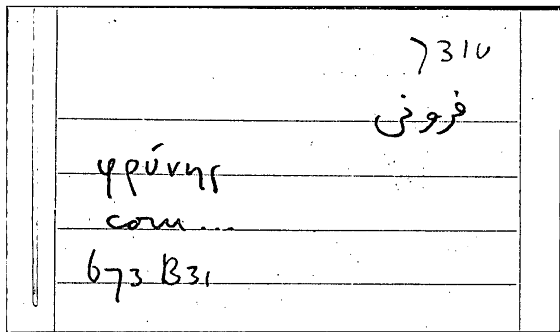 7310
فرونى
φρύνης
com...
673 B31